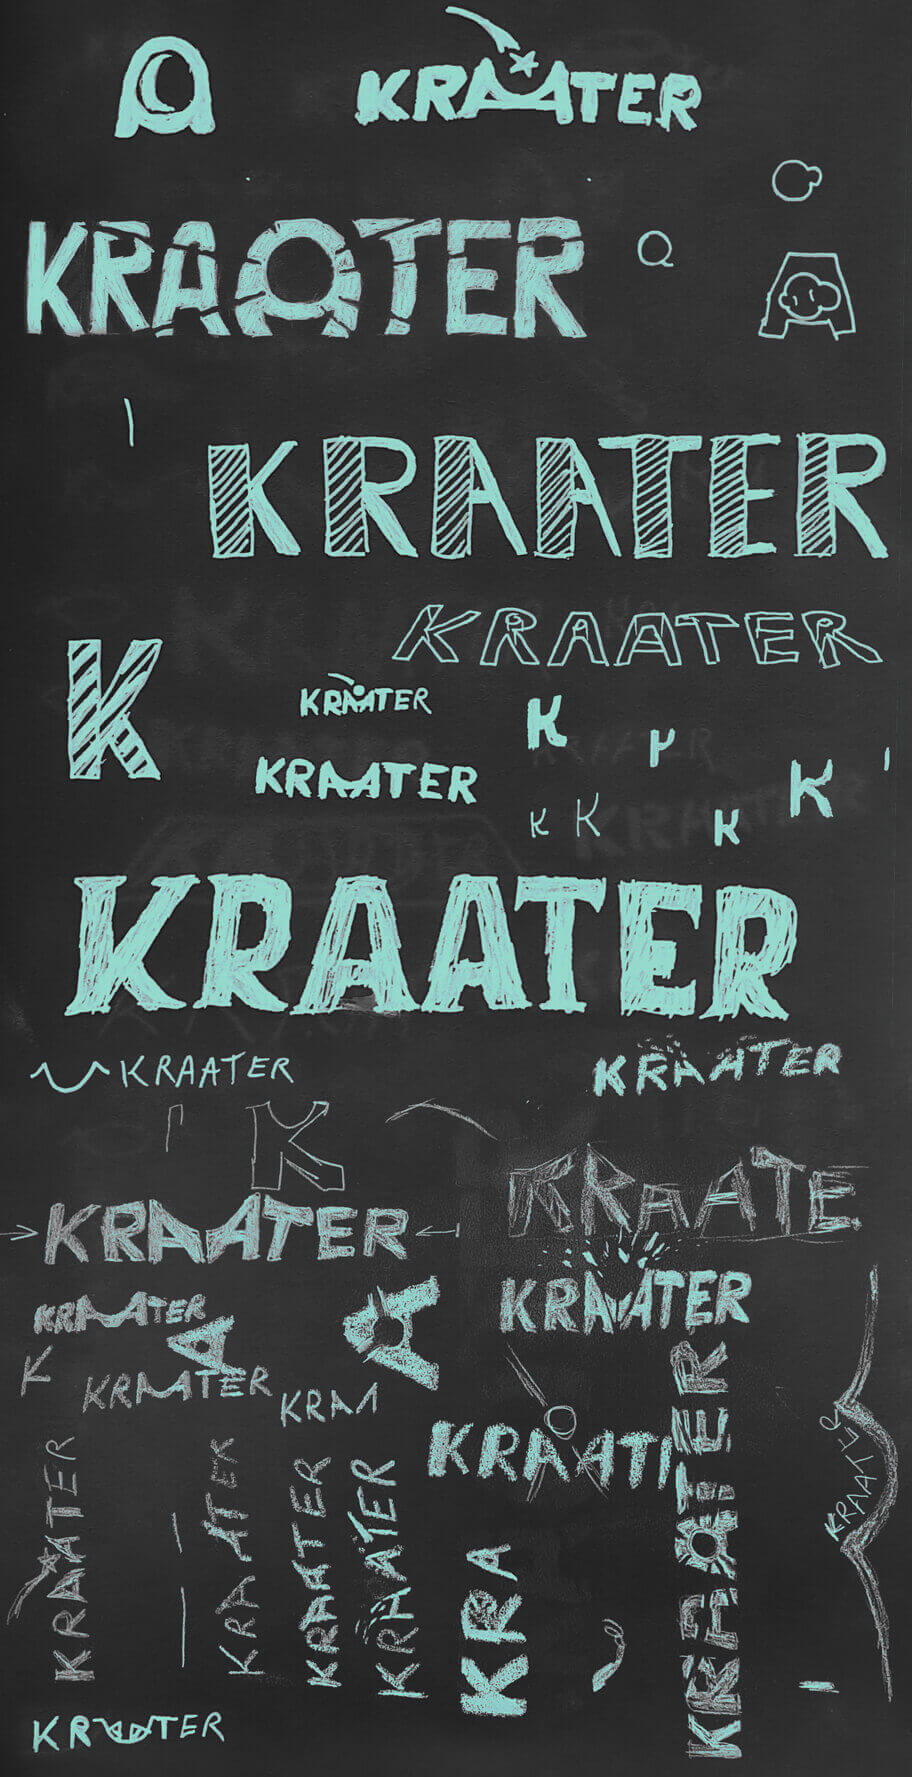 KRAATER
KRAATER
KRAATER
KRAATER
K
KRAATER
K
K
KRAATER
K
K
K
K
KRAATER
KRAATER
KRAATER
K
KRAATER
KRAATE
KRAATER
KRAATER
A
A
K
KRAATER
KRAA
KRAATI
KRAATER
KRAATER
KRAATER
KRAATER
KRAATER
KRA
KRAATER
KRAATER
KRAATER